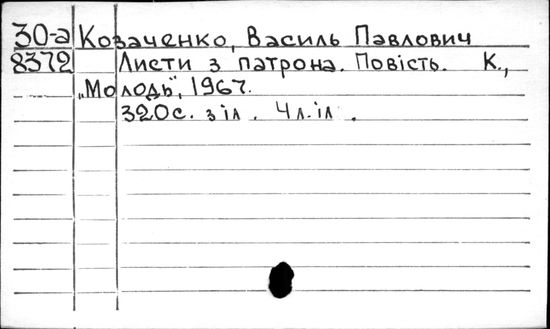 30-а Козаченко, Василь Павлович
8372 Листи з патрона. Повість. К.,
„Молодь", 1967.
320с. з іл. 4 л. іл.